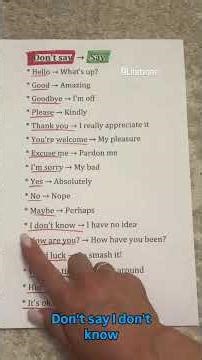 Don't say → Say
* Hello → What's up?
* Good → Amazing
* Goodbye → I'm off
* Please → Kindly
* Thank you → I really appreciate it
* You're welcome → My pleasure
* Excuse me → Pardon me
* I'm sorry → My bad
* Yes → Absolutely
* No → Nope
* Maybe → Perhaps
* I don't know → I have no idea
How are you? → How have you been?
luck → smash it!
around
* It's ok
Don't say I don't
know